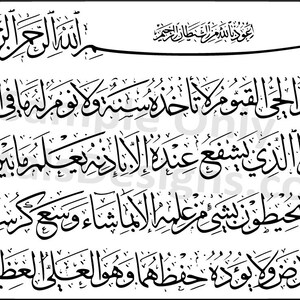 أعوذ بالله من الشيطان الرجيم
بسم الله الرحمن
الحي القيوم لا تأخذه سنة ولا نوم له ما في
الذي يشفع عنده إلا بإذنه يعلم ما بين
يحيطون بشيء من علمه إلا بما شاء وسع كرسيه
ولا يؤوده حفظهما وهو العلي العظيم